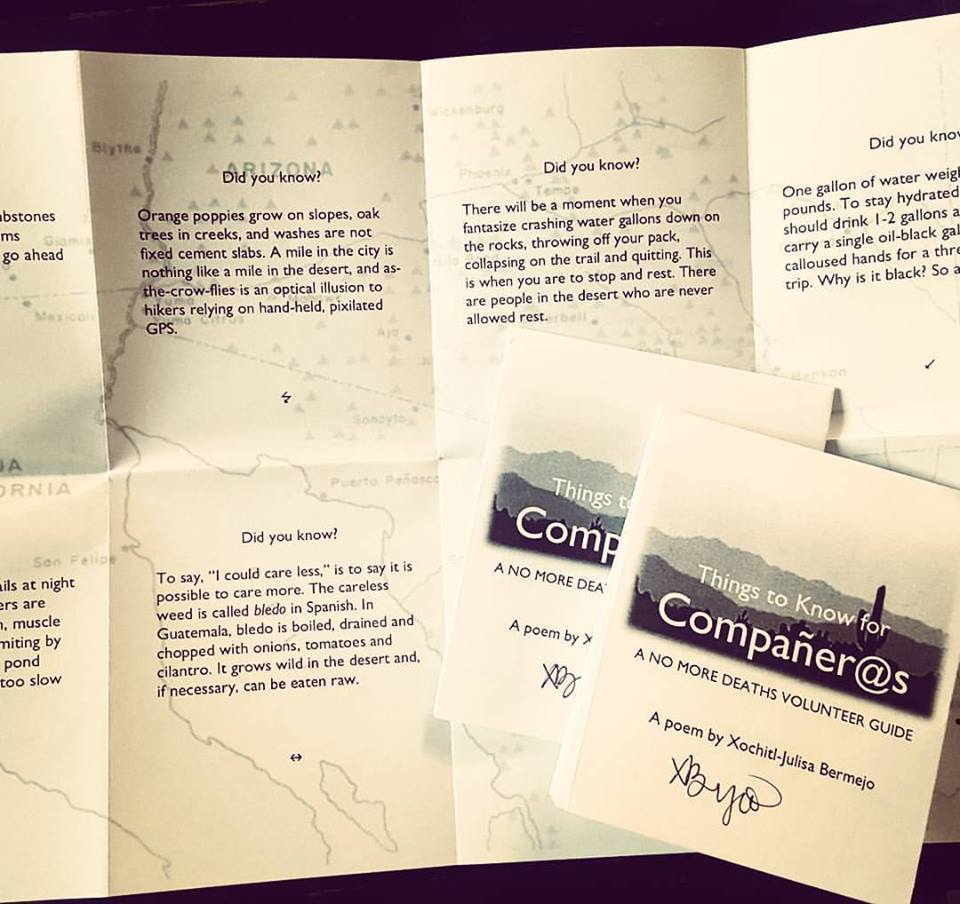 bstones
ms
go ahead
Blythe
ARIZONA
Did you know?
Orange poppies grow on slopes, oak
trees in creeks, and washes are not
fixed cement slabs. A mile in the city is
nothing like a mile in the desert, and as-
the-crow-flies is an optical illusion to
hikers relying on hand-held, pixilated
GPS.
Mexicali
Yuma
Citrus
Ajo
Sonoyta
Wickenburg
Phoenix
Tempe
Did you know?
There will be a moment when you
fantasize crashing water gallons down on
the rocks, throwing off your pack,
collapsing on the trail and quitting. This
is when you are to stop and rest. There
are people in the desert who are never
allowed rest.
Did you know
One gallon of water weigh
pounds. To stay hydrated
should drink 1-2 gallons a
carry a single oil-black gal
calloused hands for a thre
trip. Why is it black? So a
Benson
ORNIA
San Felipe
Puerto Peñasco
ails at night
ers are
, muscle
miting by
pond
too slow
Did you know?
To say, “I could care less,” is to say it is
possible to care more. The careless
weed is called bledo in Spanish. In
Guatemala, bledo is boiled, drained and
chopped with onions, tomatoes and
cilantro. It grows wild in the desert and,
if necessary, can be eaten raw.
Things to
Comp
A NO MORE DEA
A poem by X
Things to Know for
Compañer@s
A NO MORE DEATHS VOLUNTEER GUIDE
A poem by Xochitl-Julisa Bermejo